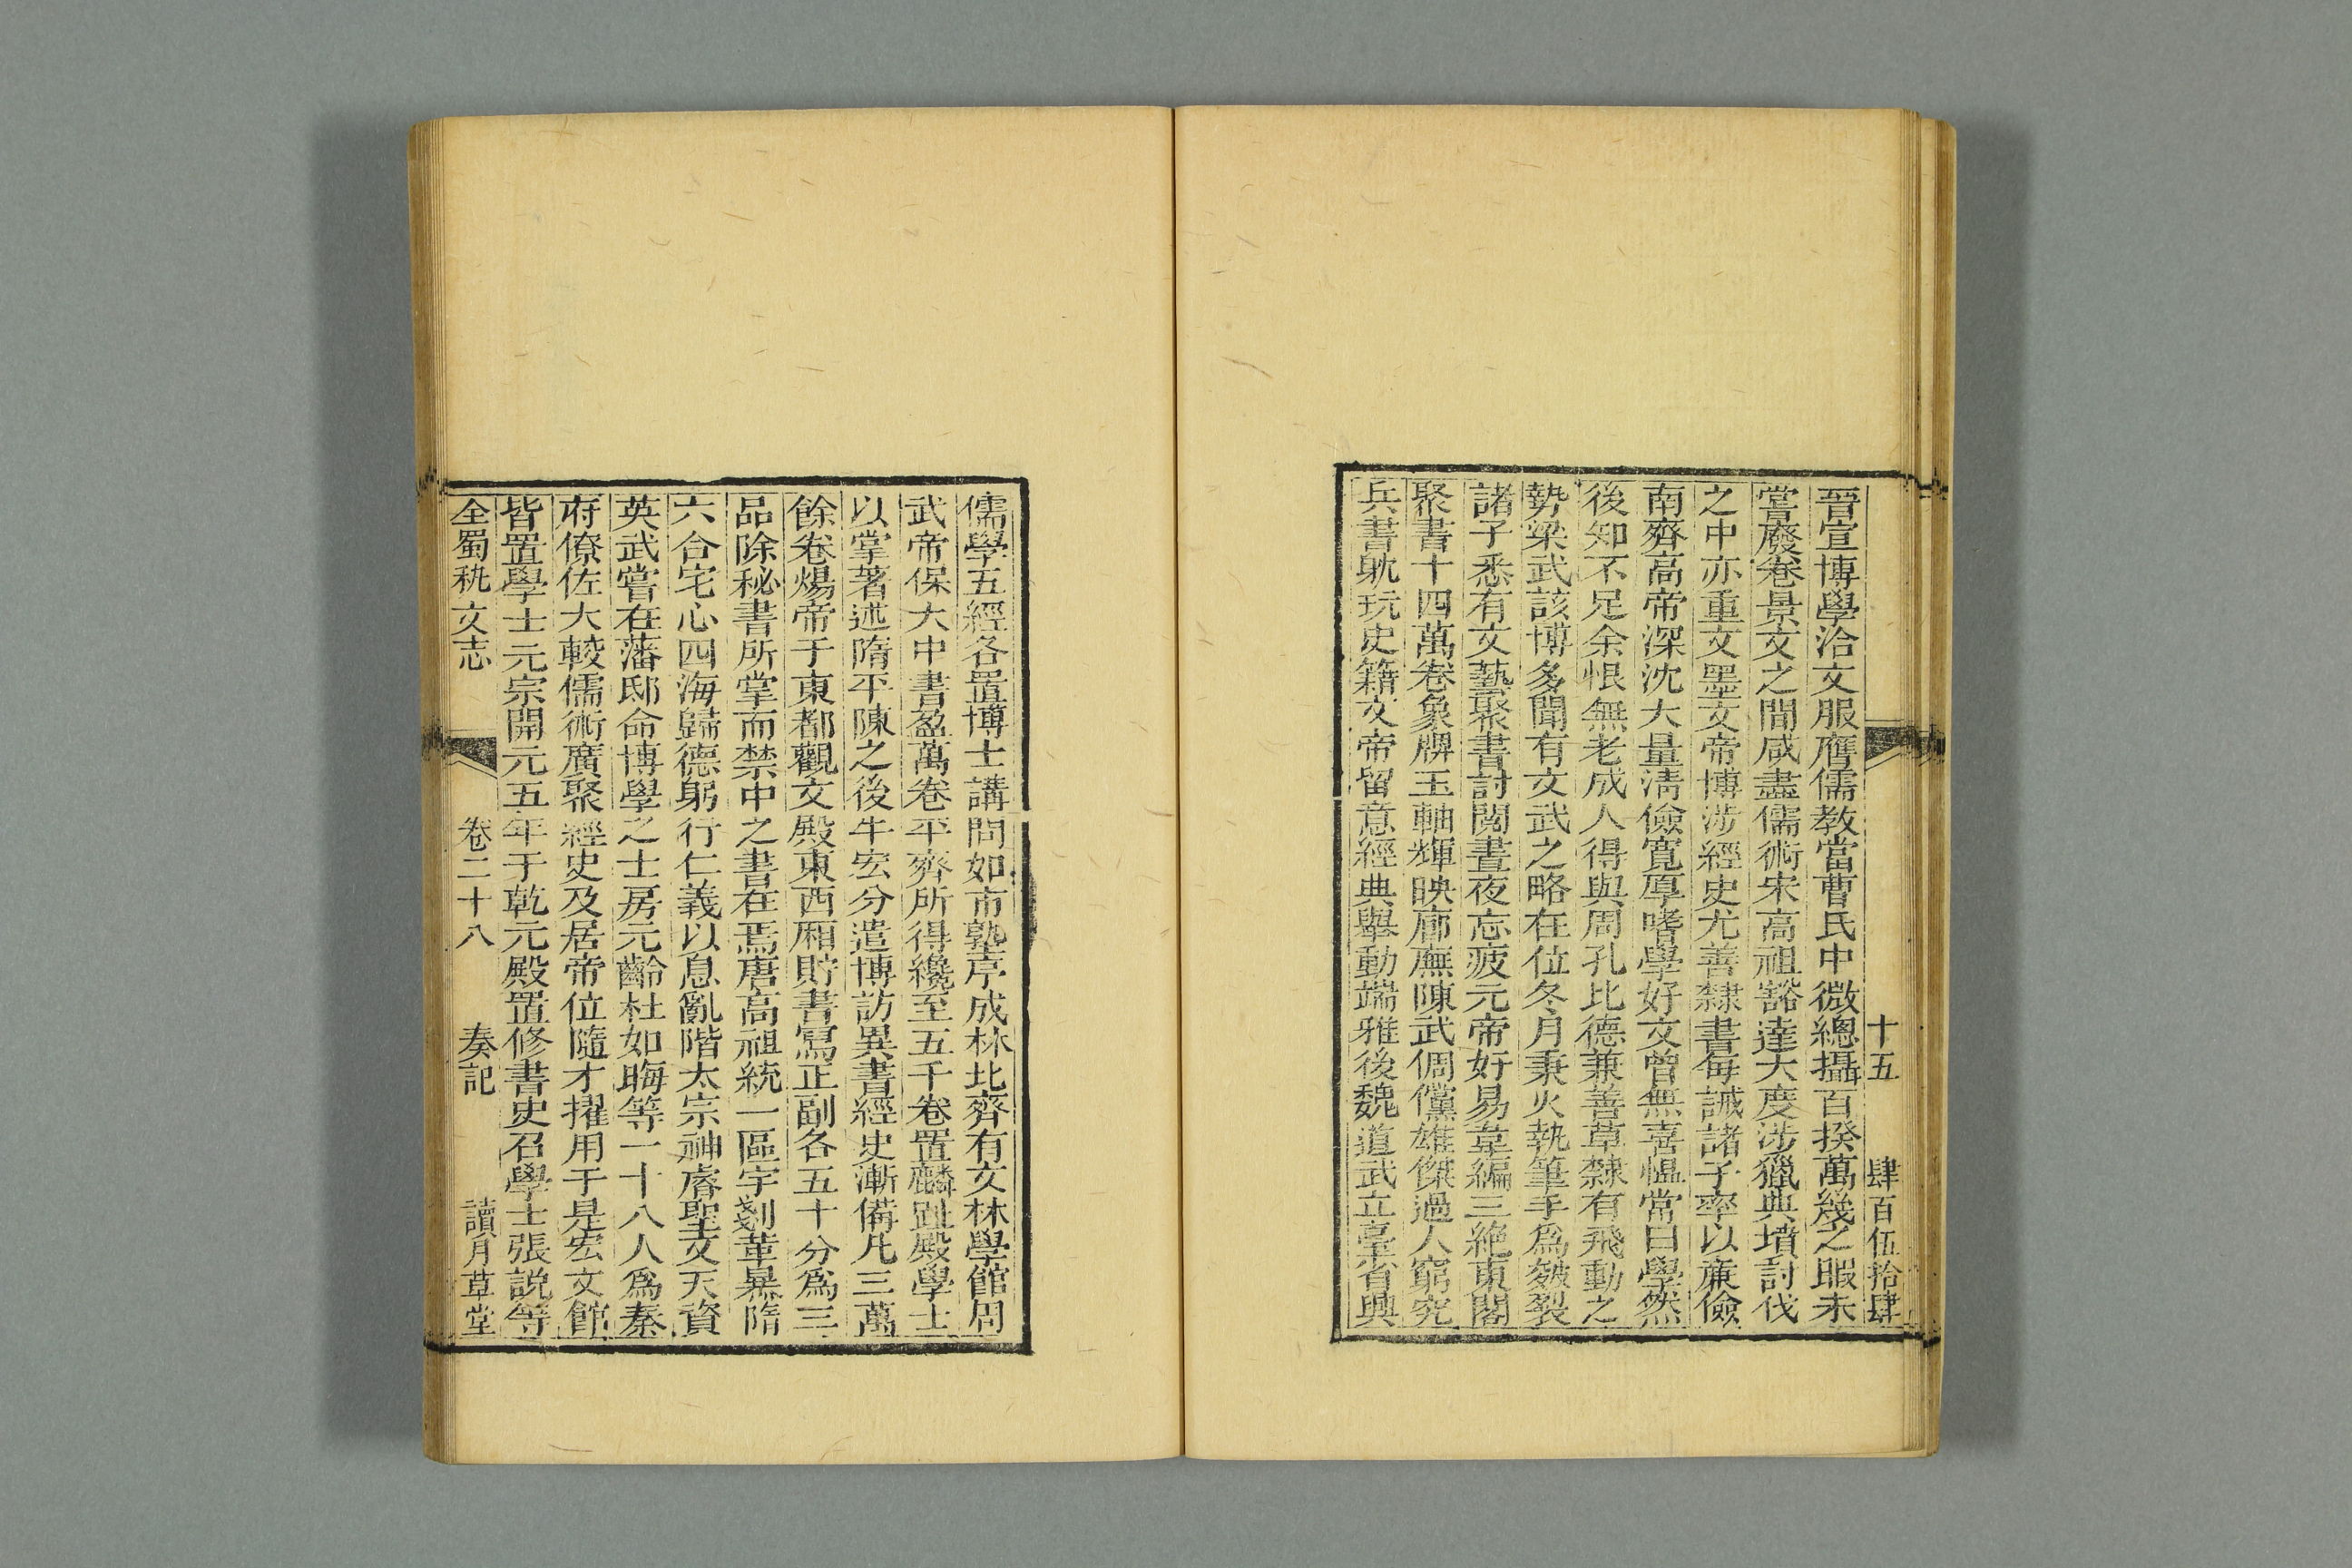 十五 肆百伍拾肆
晉宣博學洽文服膺儒教當曹氏中微總攝百揆萬幾之暇未
嘗廢卷景文之間咸盡儒術宋高祖豁達大度涉獵典墳討伐
之中亦重文墨文帝博涉經史尤善隸書每誡諸子率以廉儉
南齊高帝深沈大量清儉寬厚嗜學好文曾無喜慍常曰學然
後知不足余恨無老成人得與周孔比德兼善草隸有飛動之
勢梁武該博多聞有文武之略在位冬月秉火執筆手為皴裂
諸子悉有文藝聚書討閱晝夜忘疲元帝好易韋編三絕東閣
聚書十四萬卷象牌玉軸輝映廊廡陳武倜儻雄傑過人窮究
兵書耽玩史籍文帝留意經典舉動端雅後魏道武立臺省興
儒學五經各置博士講問如市塾序成林北齊有文林學館周
武帝保大中書盈萬卷平齊所得纔至五千卷置麟趾殿學士
以掌著述隋平陳之後牛宏分遣博訪異書經史漸備凡三萬
餘卷煬帝于東都觀文殿東西廂貯書寫正副各五十分為三
品除秘書所掌而禁中之書在焉唐高祖統一區宇剗革暴隋
六合宅心四海歸德躬行仁義以息亂階太宗神睿聖文天資
英武嘗在藩邸命博學之士房元齡杜如晦等一十八人為秦
府僚佐大較儒術廣聚經史及居帝位隨才擢用于是宏文館
皆置學士元宗開元五年于乾元殿置修書史召學士張說等
全蜀秇文志 卷二十八 奏記 讀月草堂